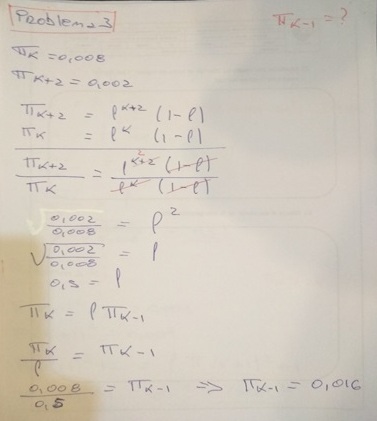 Problem 3
πK-1 = ?
πK = 0,008
πK+2 = 0,002
πK+2 = ρ^K+2 (1-ρ)
πK = ρ^K (1-ρ)
πK+2 / πK = ρ^K+2 (1-ρ) / ρ^K (1-ρ)
0,002 / 0,008 = ρ^2
√ 0,002 / 0,008 = ρ
0,5 = ρ
πK = ρ πK-1
πK / ρ = πK-1
0,008 / 0,5 = πK-1 => πK-1 = 0,016